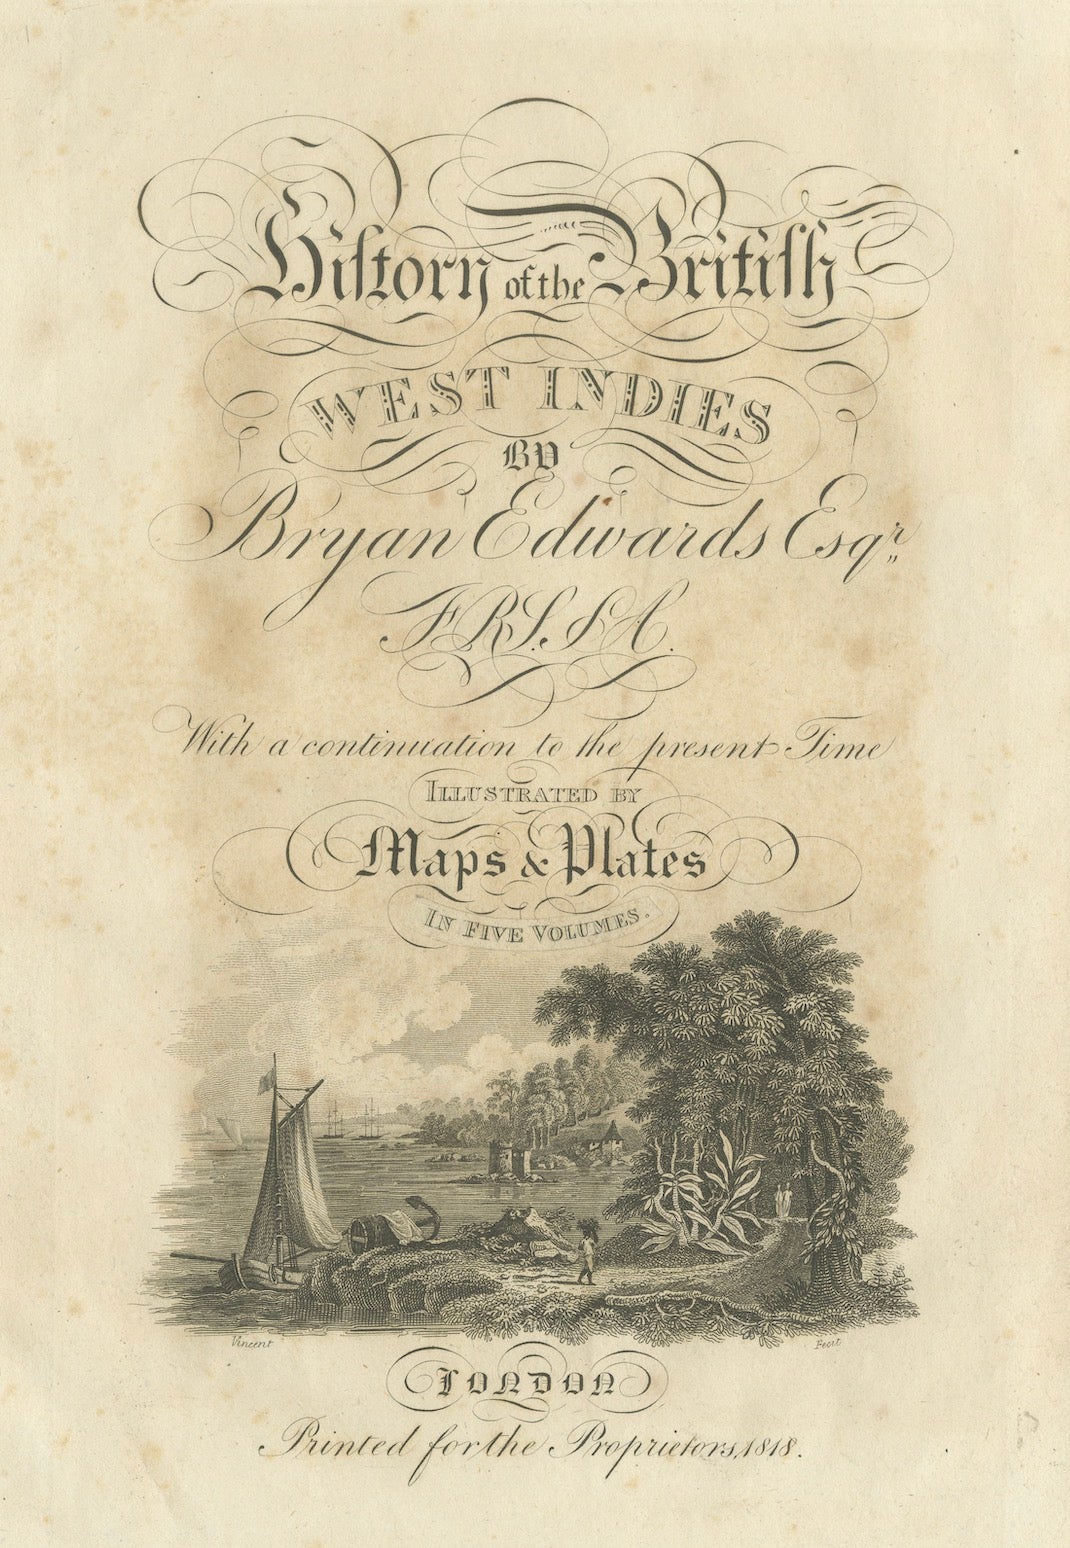 Hiſtory of the Britiſh
WEST INDIES
BY
Bryan Edwards Esqr.
F.R.S. S.A.
With a continuation to the present Time
ILLUSTRATED BY
Maps & Plates
IN FIVE VOLUMES.
Vincent Fecit
LONDON
Printed for the Proprietors, 1818.